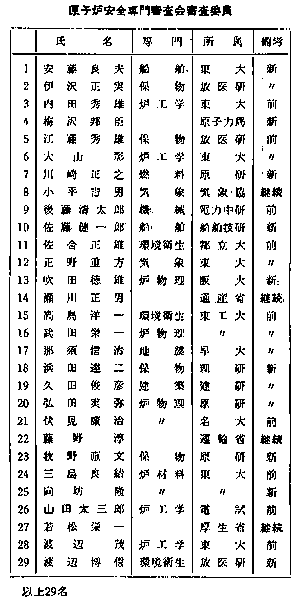 原子炉安全専門審査会審査委員
氏名 専門 所属 備考
1 安藤良夫 船舶 東大 新
2 伊沢正実 保物 放医研 〃
3 内田秀雄 炉工学 東大 前
4 梅沢邦臣 原子力局 新
5 江藤秀雄 保物 放医研 前
6 大山彰 炉工学 東大 〃
7 川崎正之 燃料 原研 新
8 小平吉男 気象 気象協 継続
9 後藤清太郎 機械 電力中研 前
10 佐藤健一郎 船舶 船舶技研 新
11 左合正雄 環境衛生 都立大 前
12 正野重方 気象 東大 〃
13 吹田徳雄 炉物理 阪大 新
14 瀬川正男 通産省 継続
15 高島洋一 環境衛生 東工大 前
16 武田栄一 炉物理 〃 〃
17 那須信治 地震 早大 〃
18 浜田達二 保物 理研 新
19 久田俊彦 建築 建研 〃
20 弘田実弥 炉物理 原研 〃
21 伏見康治 〃 名大 前
22 藤野淳 運輸省 継続
23 牧野直文 保物 原研 新
24 三島良績 炉材料 東大 前
25 向坊隆 〃 〃 新
26 山田太三郎 炉工学 電試 前
27 若松栄一 厚生省 継続
28 渡辺茂 炉工学 東大 前
29 渡辺博信 環境衛生 放医研 新
以上29名